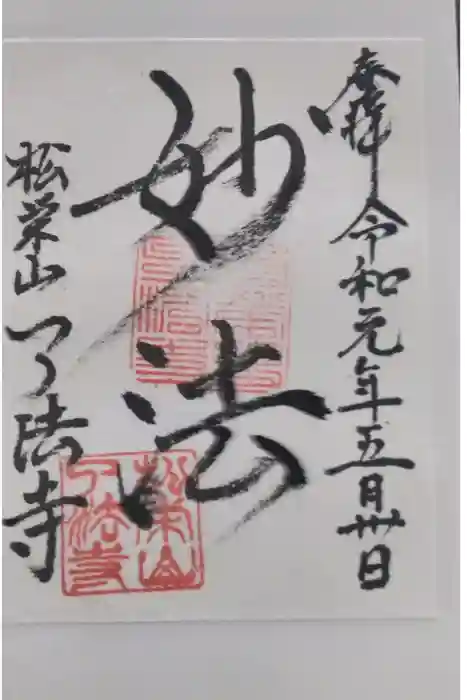 奉拝 令和元年五月卅日
妙法
松栄山 了法寺
松栄山
了法寺